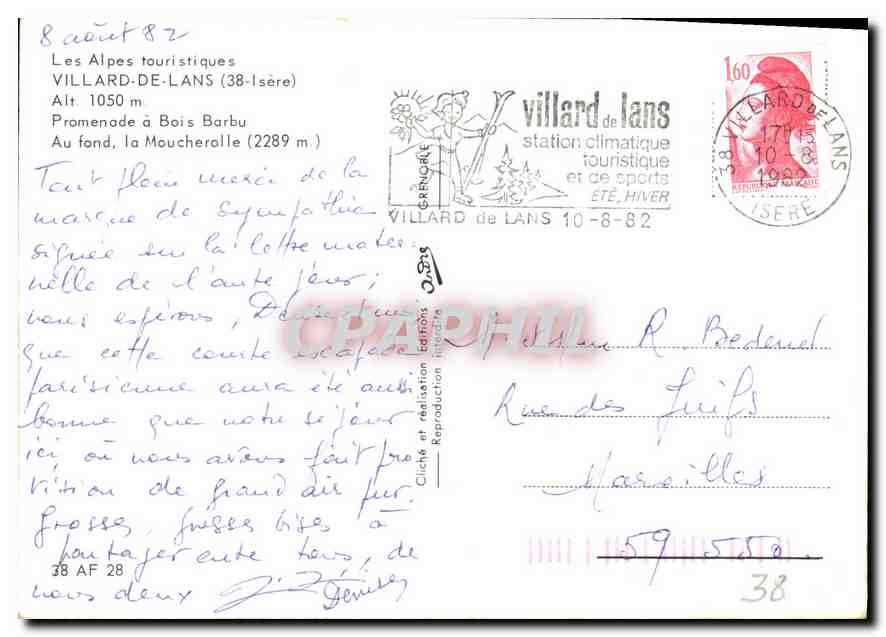 8 août 82
Les Alpes touristiques
VILLARD-DE-LANS (38-Isère)
Alt. 1050 m.
Promenade à Bois Barbu
Au fond, la Moucherolle (2289 m.)
Tout plein merci de la
marque de sympathie
signée sur la lettre mater-
nelle de l'autre jour;
nous espérons,
que cette courte escapade
parisienne aura été aussi
bonne que notre séjour
ici, où nous avons fait pro
vision de grand air pur.
Grosses, grosses bises à
partager entre tous, de
nous deux
Denise
38 AF 28
GRENOBLE
villard de lans
station climatique
touristique
et de sports
ÉTÉ, HIVER
VILLARD de LANS 10-8-82
1,60
RÉPUBLIQUE FRANÇAISE
38 VILLARD DE LANS
17H
10-8
1982
ISERE
Cliché et réalisation Editions André
Reproduction interdite
CPAPHIL
R.
Rue des Juifs
Maroilles
59 550
38